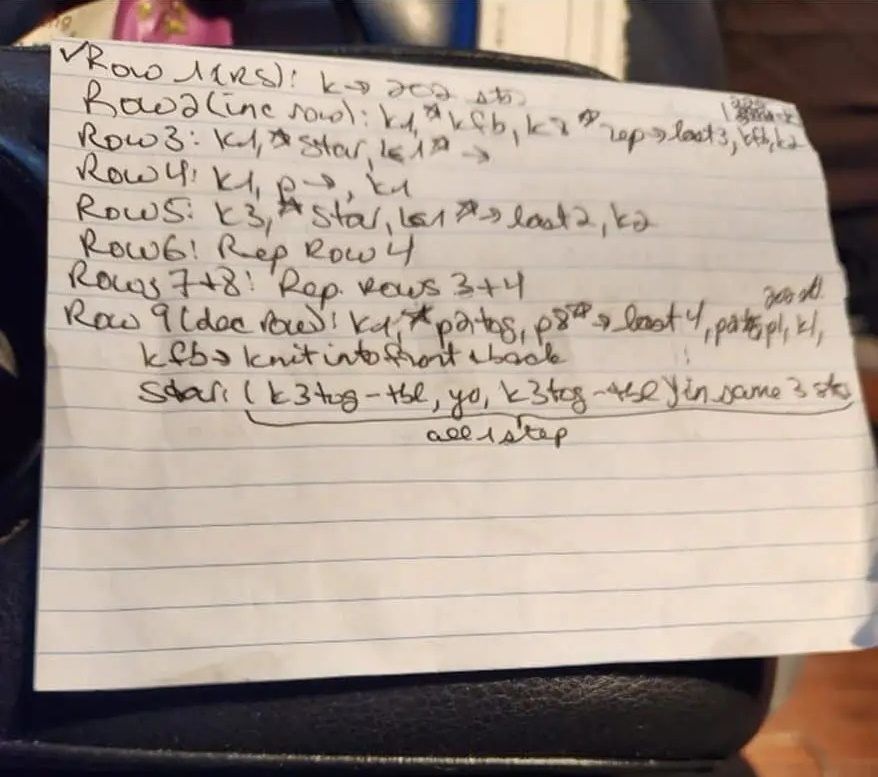 ✓Row 1(RS): k→ 202 sts
Row 2(inc row): k1, *kfb, k8* rep→last 3, kfb, k2
Row 3: k1, *star, k1* →
Row 4: k1, p→, k1
Row 5: k3, *star, k1*→last 2, k2
Row 6: Rep Row 4
Rows 7+8: Rep. rows 3+4
Row 9(dec row): k1, *p2tog, p8*→last 4, p2tog, p1, k1,
kfb→knit into front+back
Star: (k3tog-tbl, yo, k3tog-tbl) in same 3 sts
all 1 step